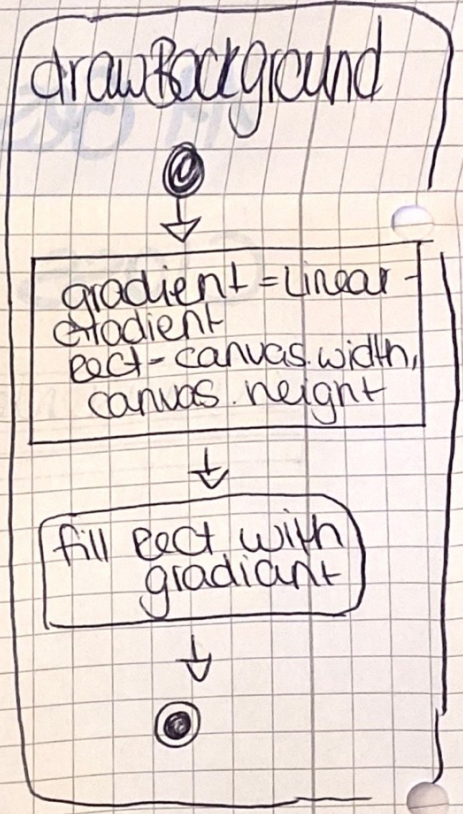 drawBackground
gradient = Linear-
Gradient
Rect - canvas.width,
canvas.height
fill Rect with
gradiant